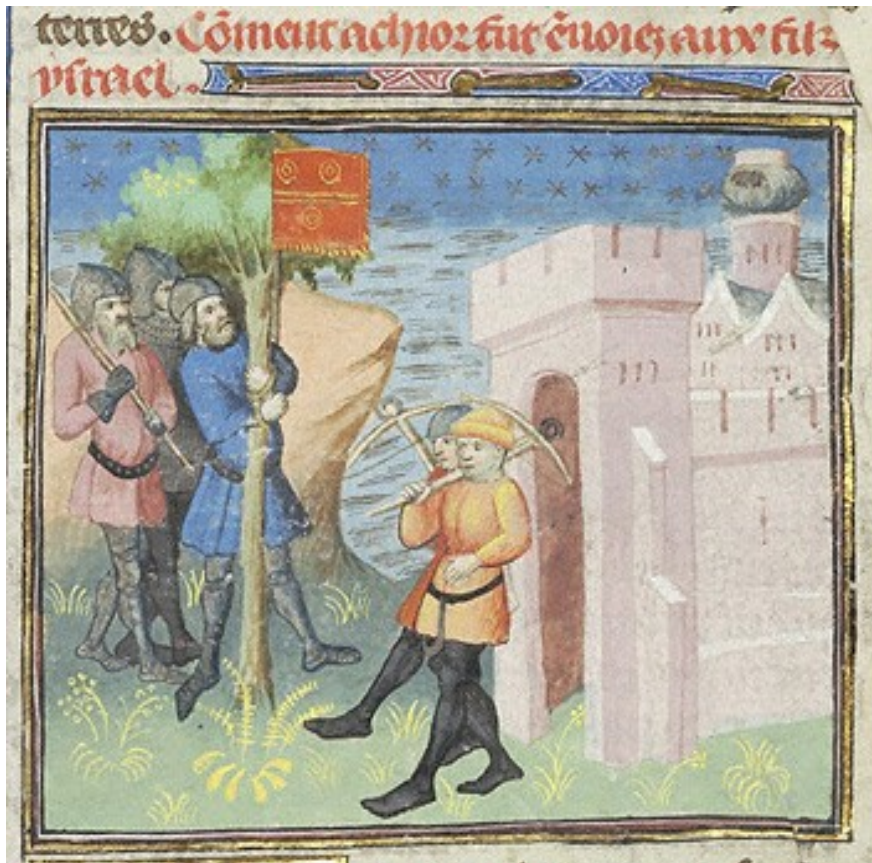 terres. Cõment achior fut ẽuoiez aux filz
ysrael.